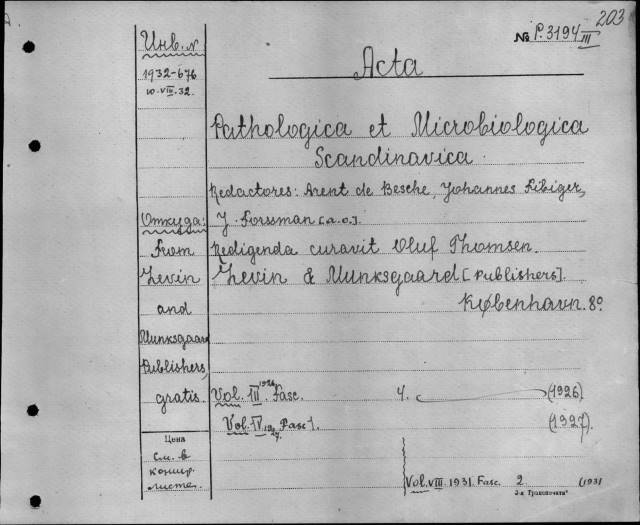 203
№ P.3194 III
Инв. №
1932-676
10.VIII.32.
Acta
Pathologica et Microbiologica
Scandinavica.
Redactores: Arent de Besche, Johannes Fibiger,
J. Forssman [a.o.].
Redigenda curavit Oluf Thomsen.
Levin & Munksgaard [Publishers].
København. 8º
Откуда:
From
Levin
and
Munksgaard
Publishers,
gratis.
Vol. III. 1926. Fasc. 4. (1926)
Vol. IV. 1927. Fasc 1. (1927).
Цена
См. в
концр.
листе.
Vol. VIII. 1931. Fasc. 2 (1931
3-я Транспечать"